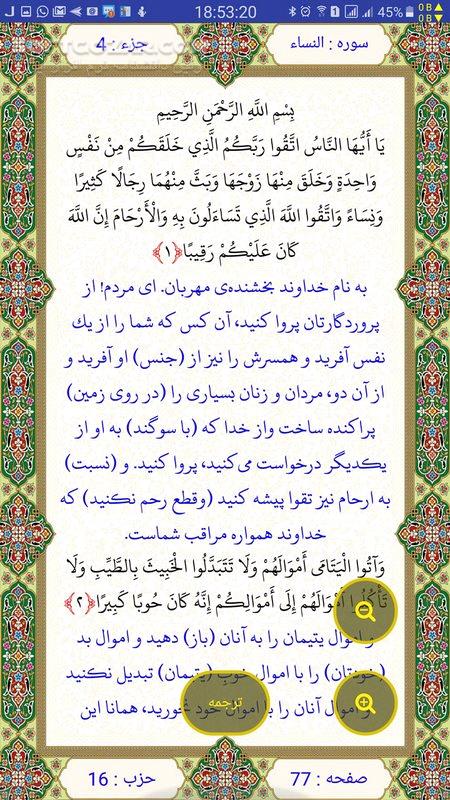 18:53:20
45%
0 B
0 B
سوره : النساء
جزء : 4
بِسْمِ اللَّهِ الرَّحْمَنِ الرَّحِيمِ
يَا أَيُّهَا النَّاسُ اتَّقُوا رَبَّكُمُ الَّذِي خَلَقَكُمْ مِنْ نَفْسٍ
وَاحِدَةٍ وَخَلَقَ مِنْهَا زَوْجَهَا وَبَثَّ مِنْهُمَا رِجَالًا كَثِيرًا
وَنِسَاءً وَاتَّقُوا اللَّهَ الَّذِي تَسَاءَلُونَ بِهِ وَالْأَرْحَامَ إِنَّ اللَّهَ
كَانَ عَلَيْكُمْ رَقِيبًا ﴿۱﴾
به نام خداوند بخشنده‌ی مهربان. ای مردم! از
پروردگارتان پروا کنید، آن کس که شما را از یك
نفس آفرید و همسرش را نیز از (جنس) او آفرید و
از آن دو، مردان و زنان بسیاری را (در روی زمین)
پراکنده ساخت واز خدا که (با سوگند) به او از
یکدیگر درخواست می‌کنید، پروا کنید. و (نسبت)
به ارحام نیز تقوا پیشه کنید (وقطع رحم نکنید) که
خداوند همواره مراقب شماست.
وَآتُوا الْيَتَامَى أَمْوَالَهُمْ وَلَا تَتَبَدَّلُوا الْخَبِيثَ بِالطَّيِّبِ وَلَا
تَأْكُلُوا أَمْوَالَهُمْ إِلَى أَمْوَالِكُمْ إِنَّهُ كَانَ حُوبًا كَبِيرًا ﴿۲﴾
و اموال یتیمان را به آنان (باز) دهید و اموال بد
(خودتان) را با اموال خوبِ (یتیمان) تبدیل نکنید
و اموال آنان را با اموال خود نخورید، همانا این
ترجمه
صفحه : 77
حزب : 16